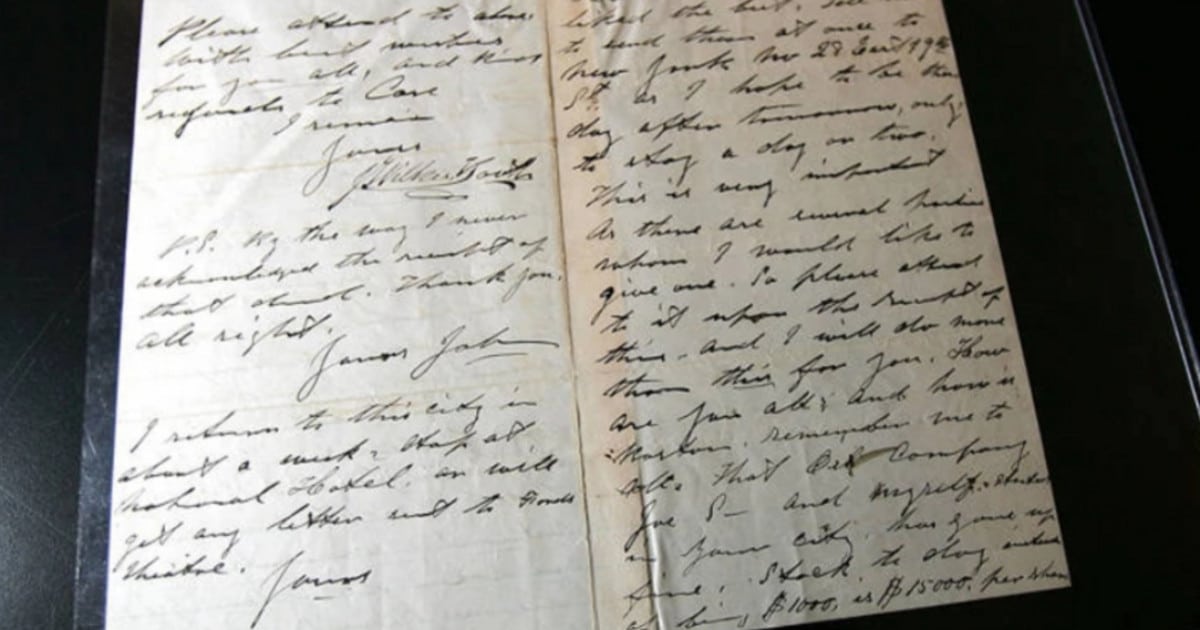 Please attend to above
with best wishes
for you all, and kind
regards to
I remain
Yours
J. Wilkes Booth
P.S. By the way I never
acknowledged the receipt of
that Thank you.
all right.
Yours John
I return to this city in
about a week. stop at
National Hotel. or will
get any letter sent to Fords
Theatre.
Yours
liked the best. Tell
to send them at once to
New York No 28 East 19th
St. as I hope to be there
day after tomorrow, only
to stay a day or two.
This is very important
As there are several parties
whom I would like to
give one. So please attend
to it upon the receipt of
this. and I will do more
than this for you. How
are you all; and how is
remember me to
all. That Oil Company
Joe S— and myself.
in your city. has gone up
fine; Stock to day instead
of being $1000, is $15000, per share